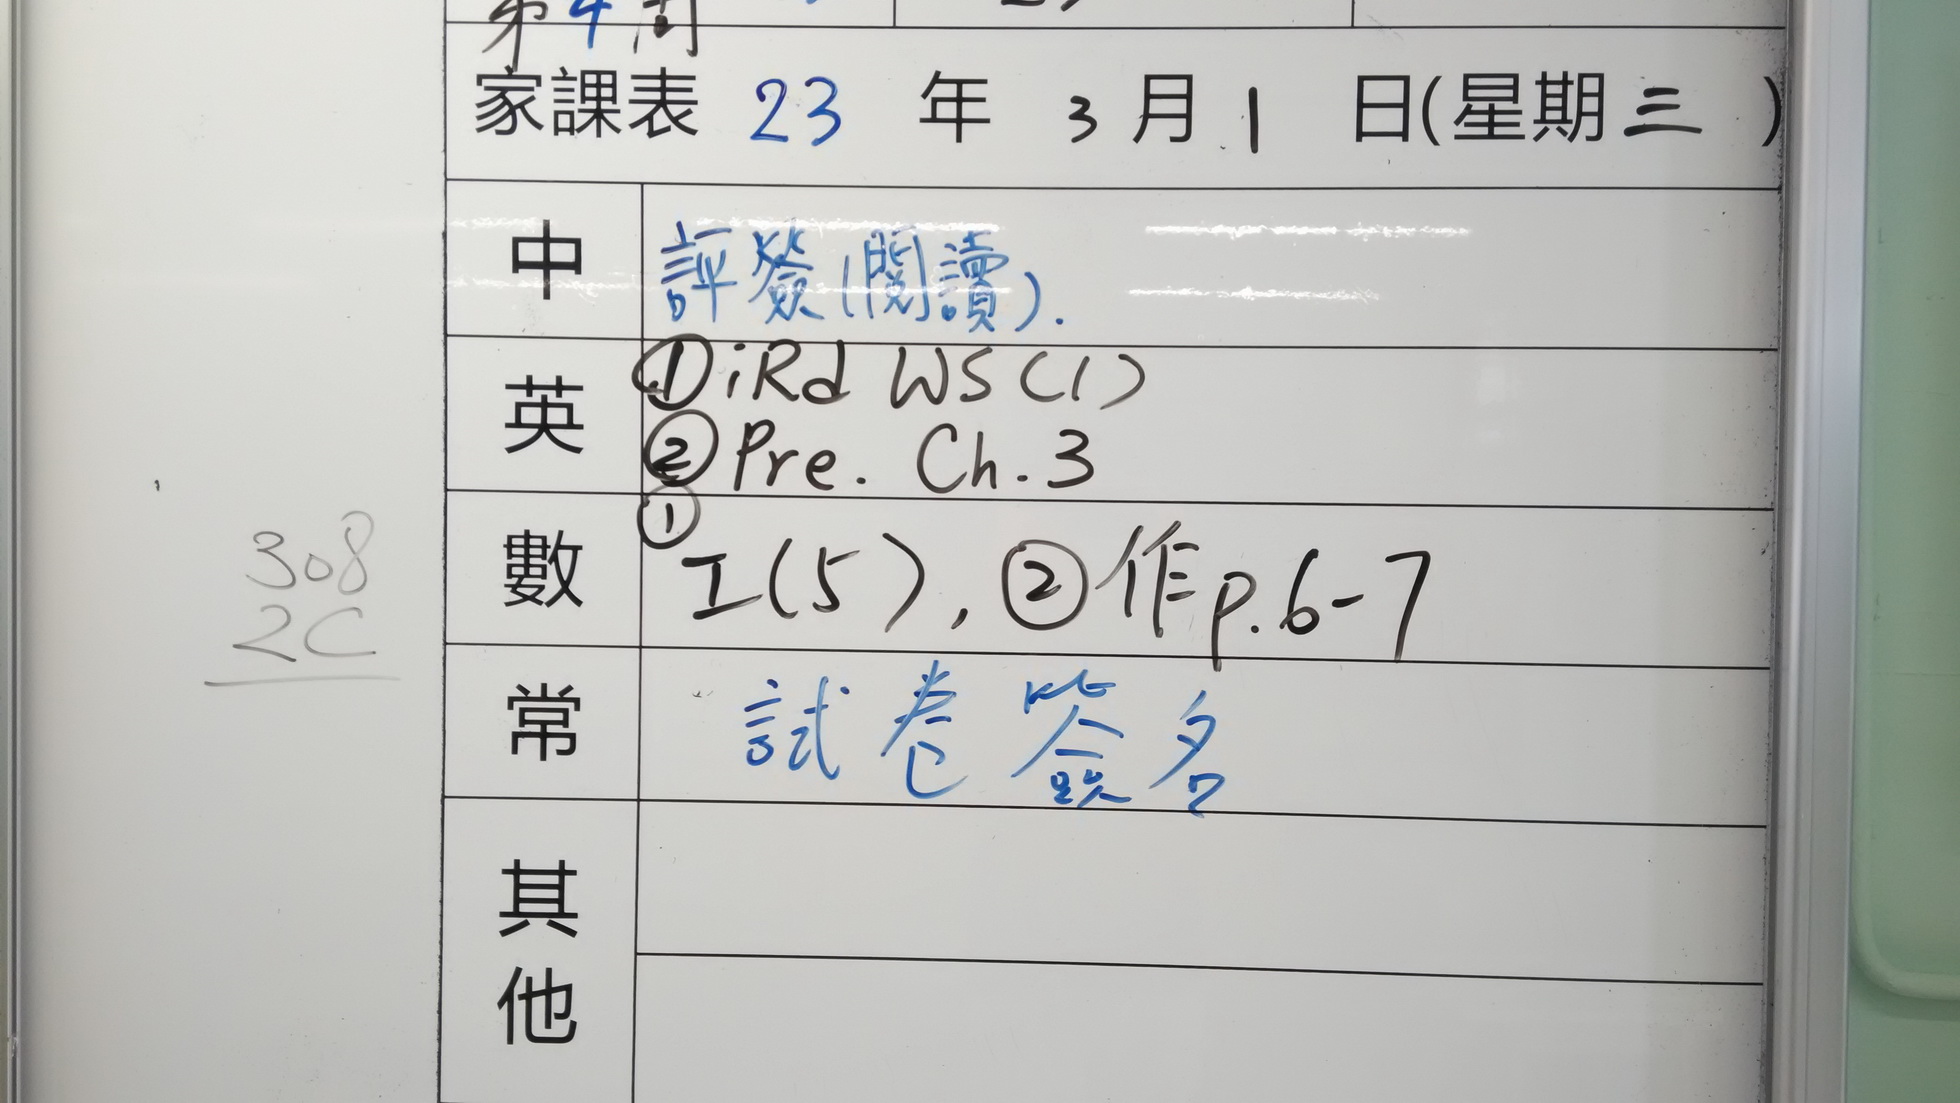 第4周
家課表 23 年 3 月 1 日(星期三 )
中 評簽(閱讀).
英 ①iRd WS(1)
②Pre. Ch.3
數 ①I(5), ②作p.6-7
常 試卷簽名
其他
308
2C